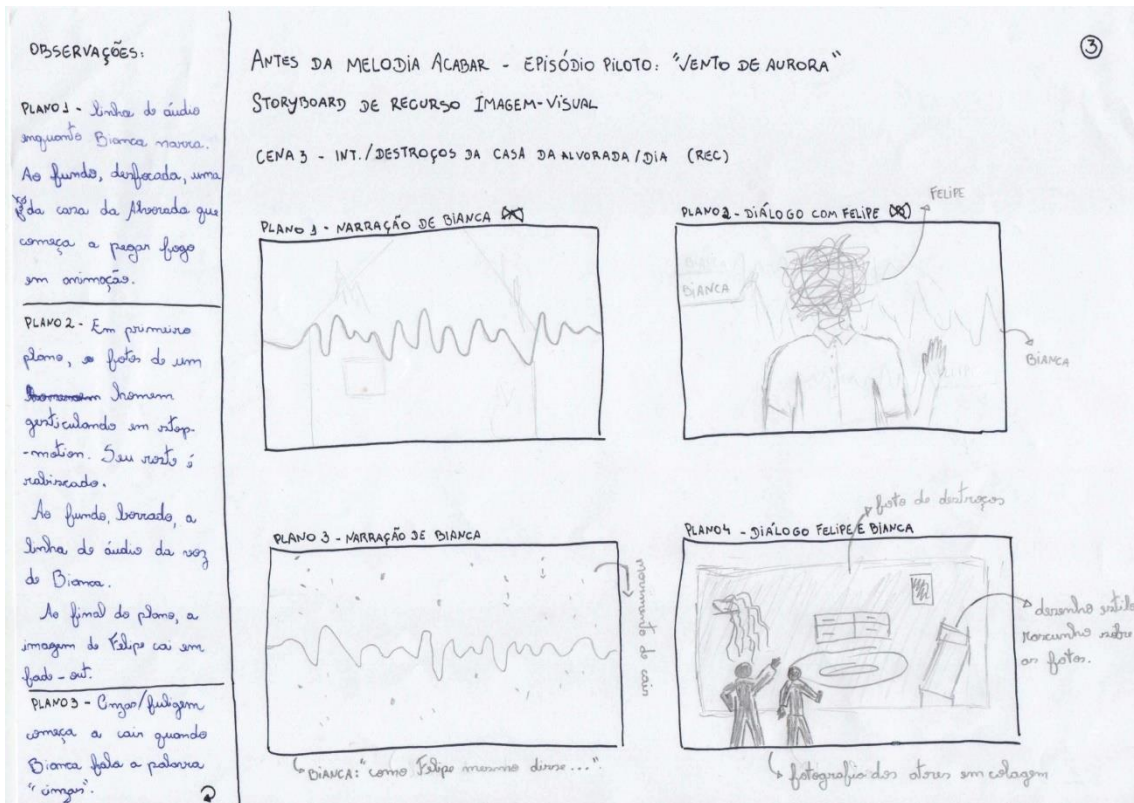 OBSERVAÇÕES:
PLANO 1 - linha de áudio
enquanto Bianca narra.
Ao fundo, desfocada, uma
da casa da Alvorada que
começa a pegar fogo
em animação.
PLANO 2 - Em primeiro
plano, fotos de um
homem
gesticulando em stop-
-motion. Seu rosto é
rabiscado.
Ao fundo, borrado, a
linha de áudio da voz
de Bianca.
Ao final do plano, a
imagem de Felipe cai em
fade-out.
PLANO 3 - Cinzas/fuligem
começa a cair quando
Bianca fala a palavra
"cinzas".
3
ANTES DA MELODIA ACABAR - EPISÓDIO PILOTO: "VENTO DE AURORA"
STORYBOARD DE RECURSO IMAGEM-VISUAL
CENA 3 - INT./DESTROÇOS DA CASA DA ALVORADA/DIA (REC)
PLANO 1 - NARRAÇÃO DE BIANCA
PLANO 2 - DIÁLOGO COM FELIPE
FELIPE
BIANCA
BIANCA
PLANO 3 - NARRAÇÃO DE BIANCA
movimento de cair
BIANCA: "como Felipe mesmo disse..."
PLANO 4 - DIÁLOGO FELIPE E BIANCA
foto de destroços
desenho estilo
rascunho sobre
as fotos.
fotografia dos atores em colagem